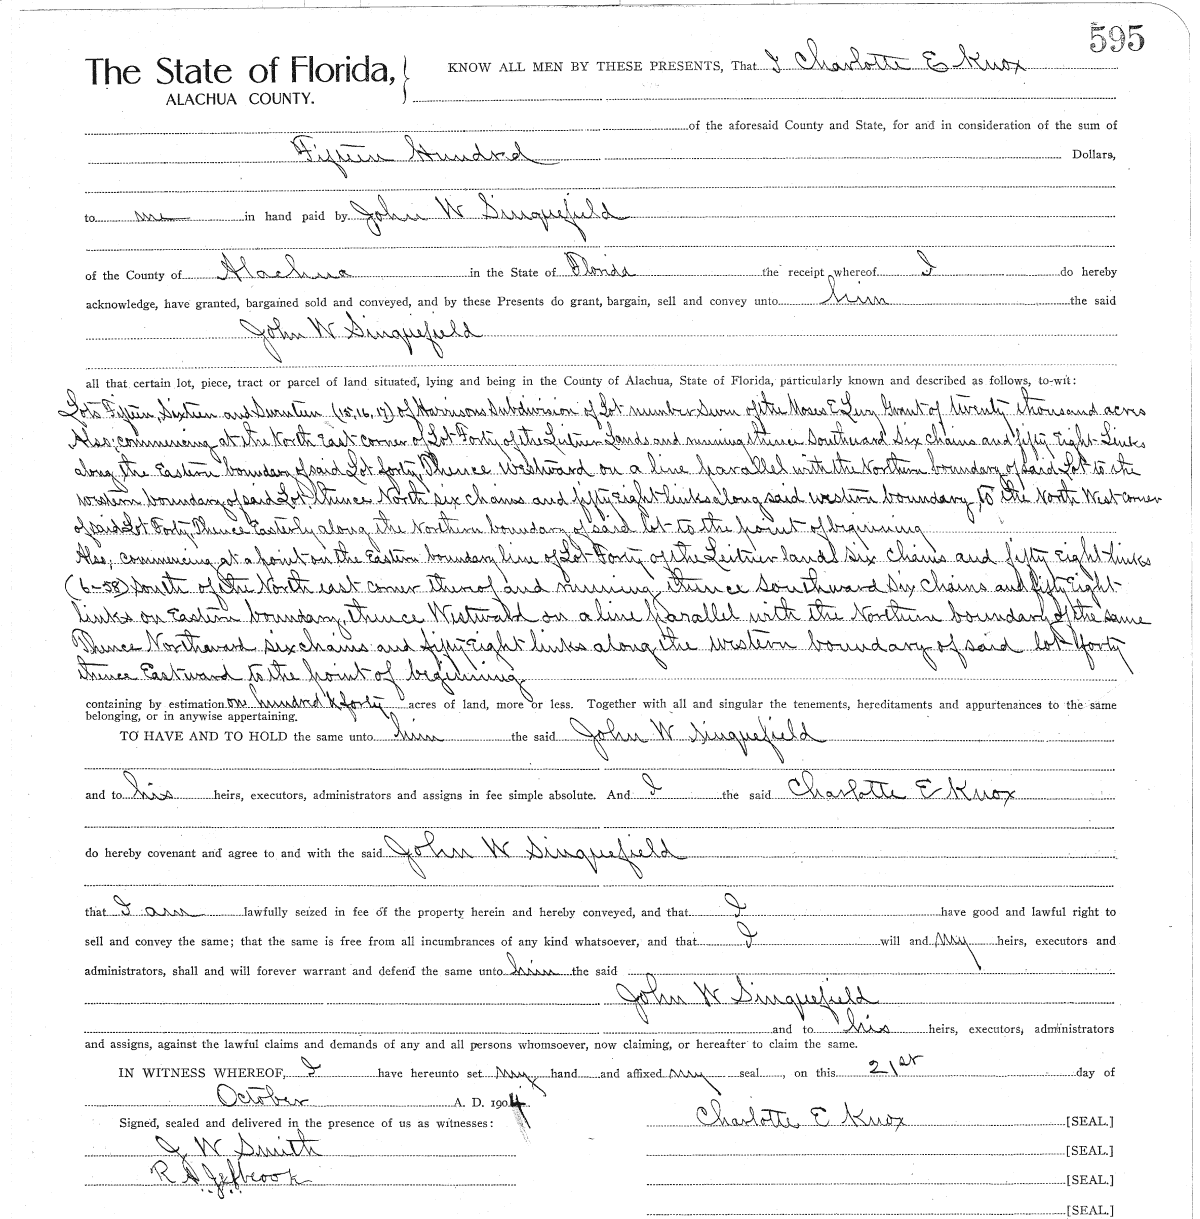 595
The State of Florida, KNOW ALL MEN BY THESE PRESENTS, That I Charlotte E Knox
ALACHUA COUNTY.
of the aforesaid County and State, for and in consideration of the sum of
Fifteen Hundred Dollars,
to me in hand paid by John W Sinquefield
of the County of Alachua in the State of Florida the receipt whereof I do hereby
acknowledge, have granted, bargained sold and conveyed, and by these Presents do grant, bargain, sell and convey unto him the said
John W Sinquefield
all that certain lot, piece, tract or parcel of land situated, lying and being in the County of Alachua, State of Florida, particularly known and described as follows, to-wit:
Lots Fifteen, Sixteen and Seventeen (15, 16, 17) of Harrisons Subdivision of Lot number Seven of the Moses E Levy Grant of twenty thousand acres
Also; commencing at the North East corner of Lot Forty of the Leitner Lands and running thence Southward Six chains and fifty Eight Links
along the Eastern boundary of said Lot forty, Thence Westward on a line parallel with the Northern boundary of said Lot to the
western boundary of said Lot, thence North six chains and fifty Eight links along said western boundary, to the North West corner
of said Lot Forty, Thence Easterly along the Northern boundary of said lot to the point of beginning
Also; commencing at a point on the Eastern boundary line of Lot Forty of the Leitner lands six chains and fifty Eight links
(6-58) South of the North east corner thereof and running thence Southward Six Chains and fifty Eight
links on Eastern boundary, thence Westward on a line parallel with the Northern boundary of the same
Thence Northward six chains and fifty Eight links along the western boundary of said lot forty
thence Eastward to the point of beginning
containing by estimation one hundred & forty acres of land, more or less. Together with all and singular the tenements, hereditaments and appurtenances to the same
belonging, or in anywise appertaining.
TO HAVE AND TO HOLD the same unto him the said John W Sinquefield
and to his heirs, executors, administrators and assigns in fee simple absolute. And I the said Charlotte E Knox
do hereby covenant and agree to and with the said John W Sinquefield
that I am lawfully seized in fee of the property herein and hereby conveyed, and that I have good and lawful right to
sell and convey the same; that the same is free from all incumbrances of any kind whatsoever, and that I will and my heirs, executors and
administrators, shall and will forever warrant and defend the same unto him the said
John W Sinquefield
and to his heirs, executors, administrators
and assigns, against the lawful claims and demands of any and all persons whomsoever, now claiming, or hereafter to claim the same.
IN WITNESS WHEREOF, I have hereunto set my hand and affixed my seal, on this 21st day of
October A. D. 1904
Signed, sealed and delivered in the presence of us as witnesses: Charlotte E Knox [SEAL.]
J W Smith [SEAL.]
R [SEAL.]
[SEAL.]